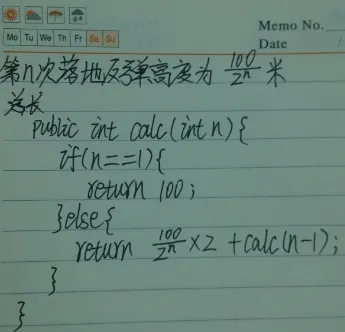 Memo No.
Mo Tu We Th Fr Sa Su
Date
第n次落地反弹高度为 100/2ⁿ 米
总长
public int calc(int n){
if(n==1){
return 100;
}else{
return 100/2ⁿ ×2 +calc(n-1);
}
}